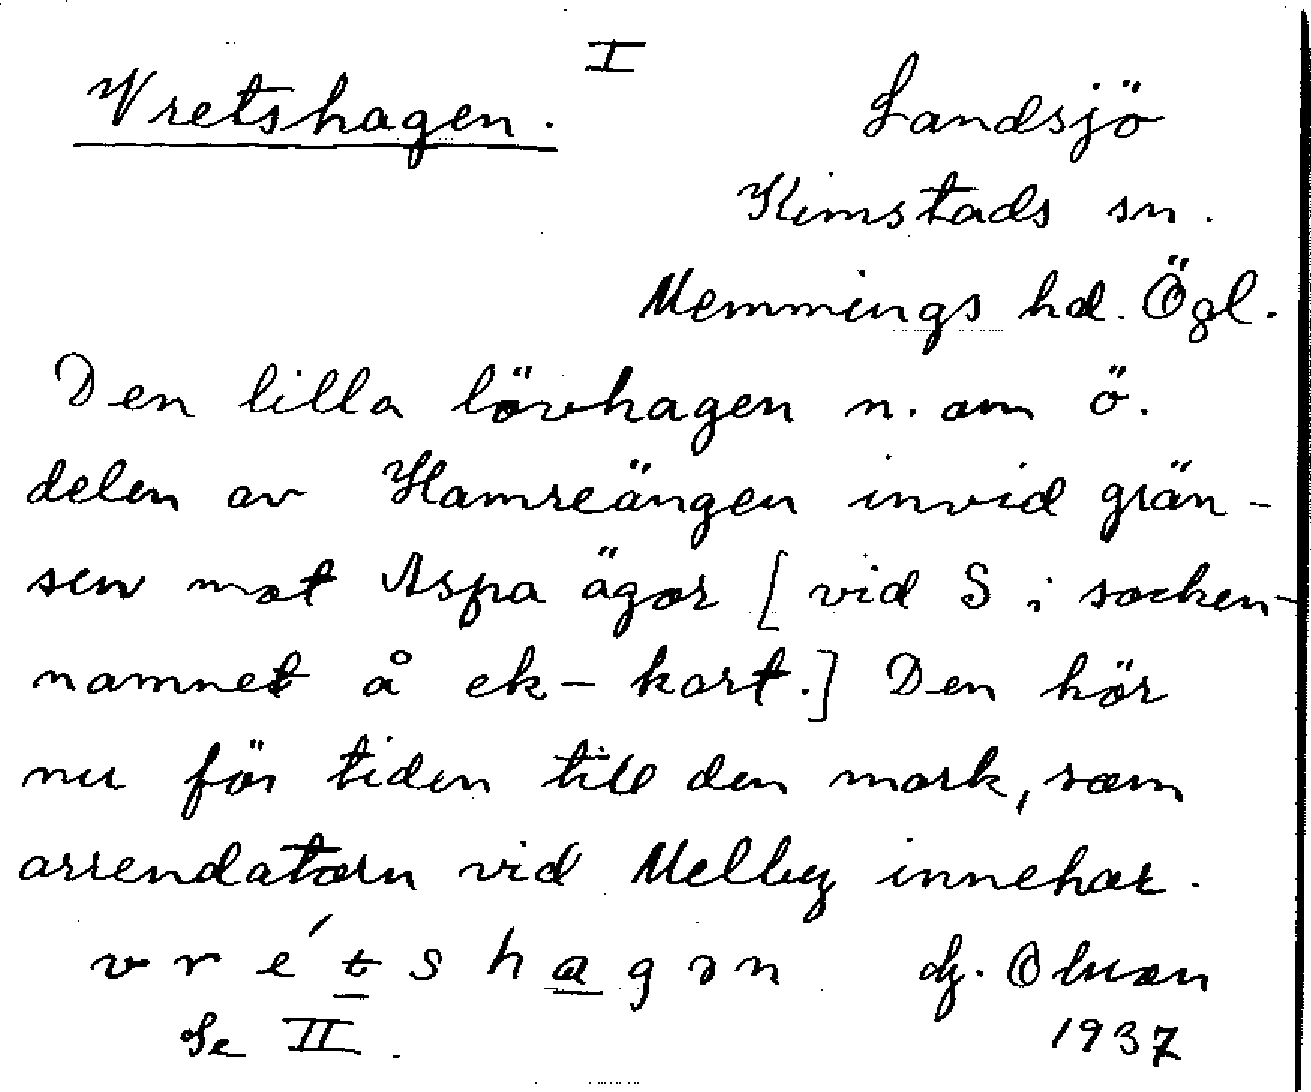 I
Vretshagen. Landsjö
Kimstads sn.
Memmings hd. Ögl.
Den lilla lövhagen n. om ö.
delen av Hamreängen invid grän-
sen mot Aspa ägor [vid S i socken-
namnet å ek-kart.] Den hör
nu för tiden till den mark, som
arrendatorn vid Melby innehar.
vrétshagən
Se II. 1937